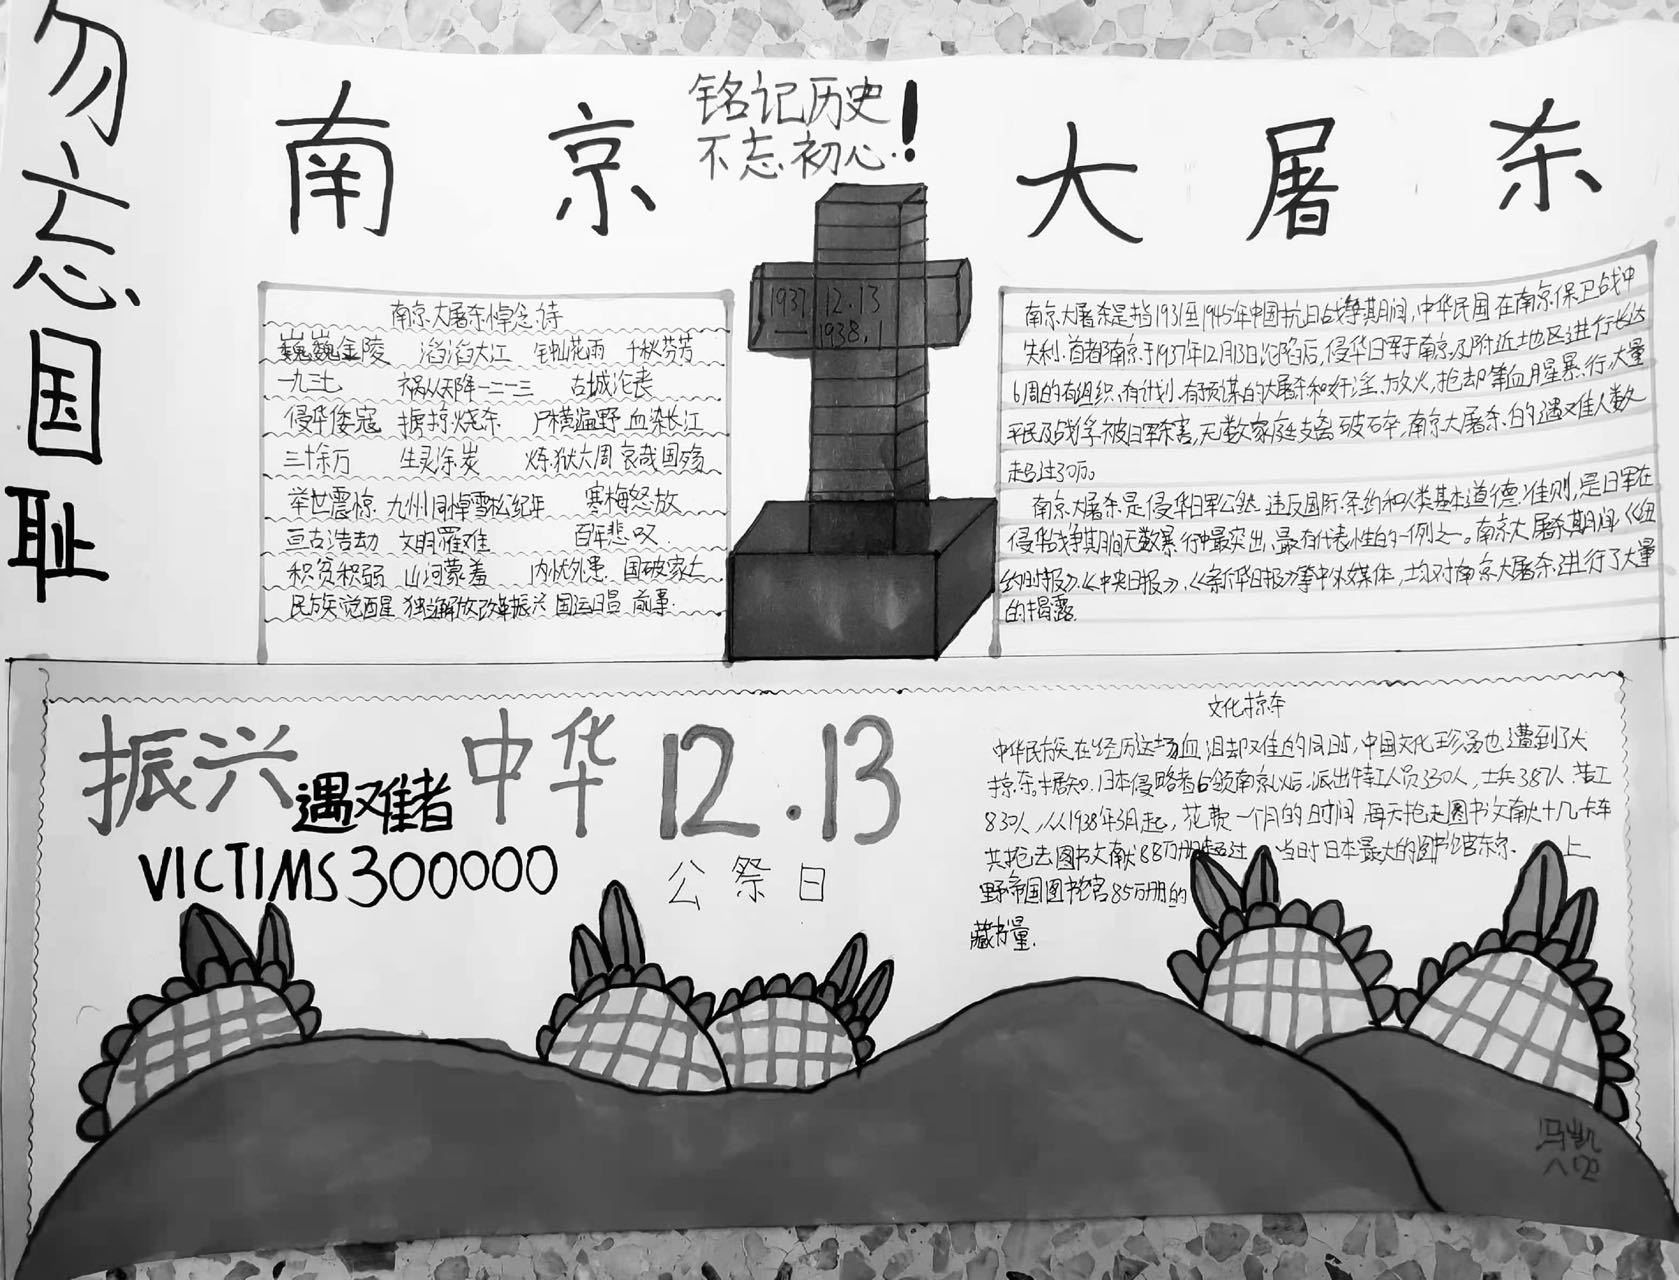 勿忘国耻
铭记历史
不忘初心!
南京大屠杀
1937 12.13
—1938.1
南京大屠杀悼念诗
巍巍金陵 滔滔大江 钟山花雨 千秋芬芳
一九三七 祸从天降 一二一三 古城沦丧
侵华倭寇 掳掠烧杀 尸横遍野 血染长江
三十余万 生灵涂炭 炼狱六周 哀哉国殇
举世震惊 九州同悼 雪松纪年 寒梅怒放
亘古浩劫 文明罹难 百年悲叹
积贫积弱 山河蒙羞 内忧外患 国破家亡
民族觉醒 独立解放 改革振兴 国运日昌 前事
南京大屠杀是指1931至1945年中国抗日战争期间,中华民国在南京保卫战中
失利、首都南京于1937年12月13日沦陷后,侵华日军于南京及附近地区进行长达
6周的有组织、有计划、有预谋的大屠杀和奸淫、放火、抢劫等血腥暴行,大量
平民及战俘被日军杀害,无数家庭支离破碎,南京大屠杀的遇难人数
超过30万。
南京大屠杀是侵华日军公然违反国际条约和人类基本道德准则,是日军在
侵华战争其期间无数暴行中最突出、最有代表性的一例之一。南京大屠杀期间《纽
约时报》、《中央日报》、《新华日报》等中外媒体,均对南京大屠杀进行了大量
的揭露.
振兴中华
遇难者
VICTIMS300000
12.13
公祭日
文化掠夺
中华民族在经历这场血泪劫难的同时,中国文化珍品也遭到了大
掠杀.据知.日本侵略者占领南京以后,派出特工人员330人,士兵387人 苦工
830人,从1938年3月起,花费一个月的时间 每天抢走图书文献十几卡车
共抢去图书文献88万册超过 当时日本最大的图书馆东京 上
野帝国图书馆85万册的
藏书量.
冯凯